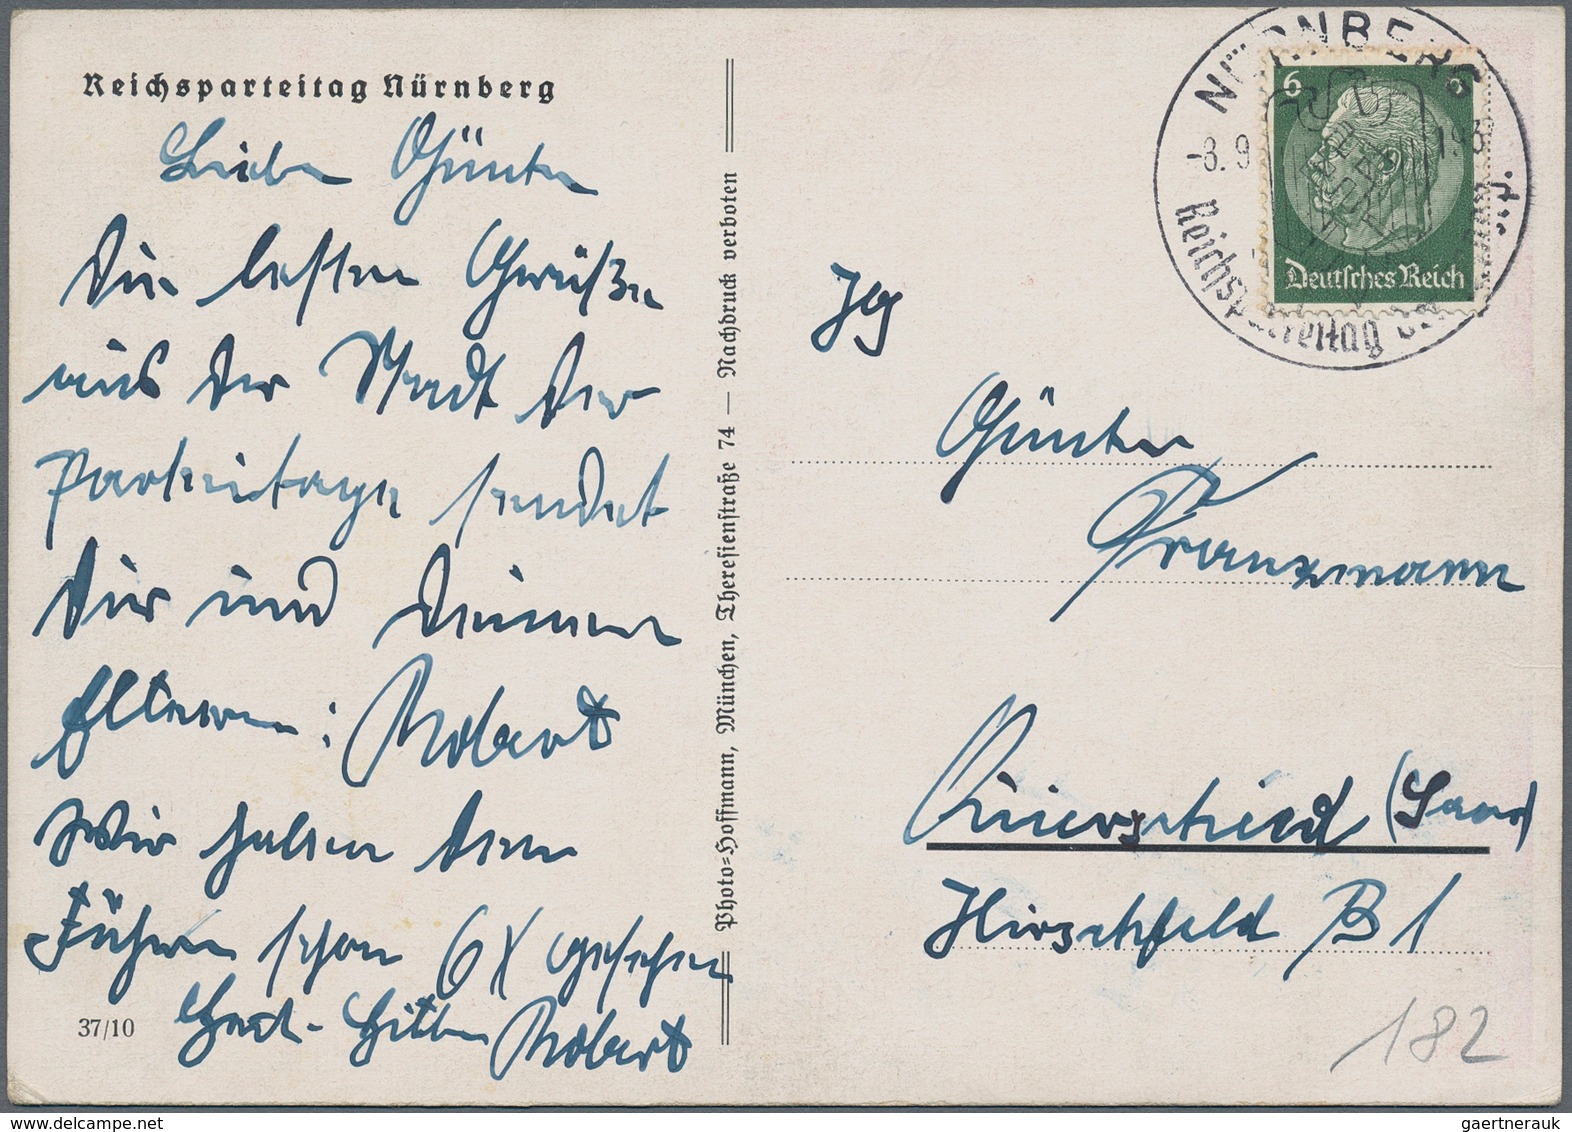 Reichsparteitag Nürnberg
Lieber Günter
Die besten Grüße
aus der Stadt der
Parteitage sendet
Dir und Deinen
Eltern: Robert
Wir haben den
Führer schon 6x gesehen
Heil-Hitler Robert
37/10
Photo=Hoffmann, München, Theresienstraße 74 — Nachdruck verboten
NÜRNBERG
-8.9
193
Reichsparteitag der
6
Deutsches Reich
Jg
Günter
Franzmann
Quierschied (Saar)
Hirschfeld B 1
182
gaertnerauk